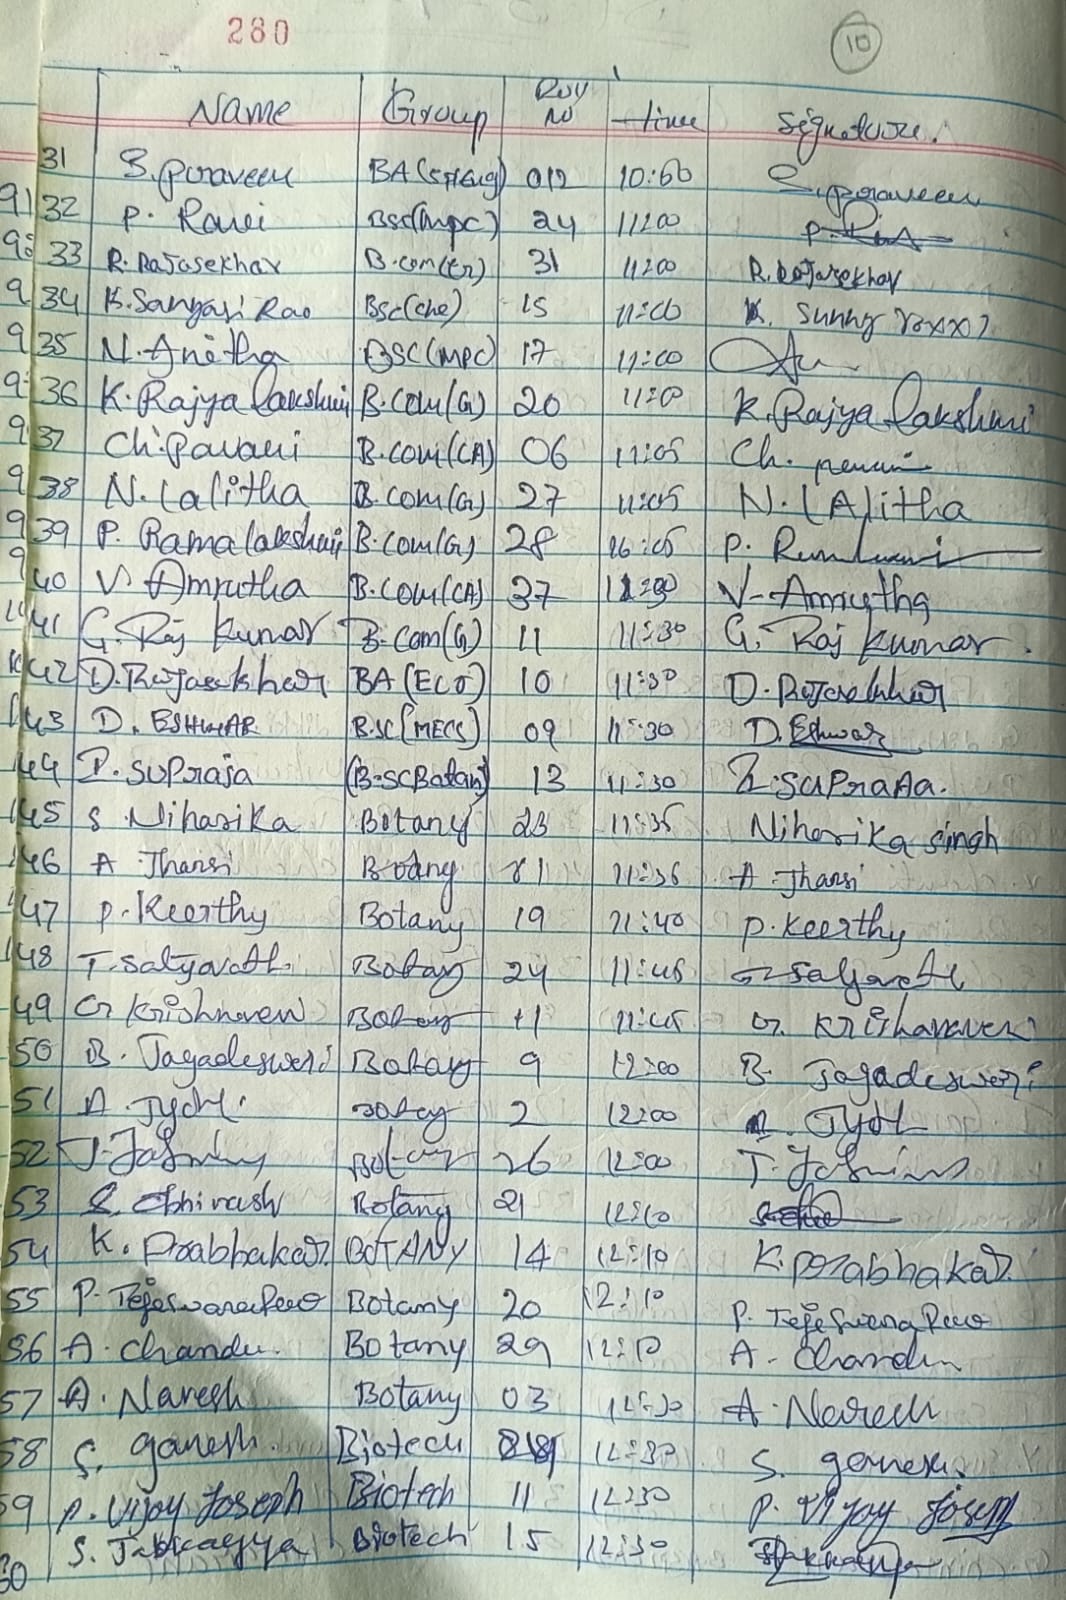 280
10
Name Group Roll No time Signature.
31 S. praveen BA(SplEng) 012 10:60 S. praveen
32 P. Ravi BSc(MPC) 24 11:00
33 R. Rajasekhar B.com(Er) 31 11:00 R. Rajasekhar
34 K. Sanyasi Rao BSc(che) 15 11:00 K. Sunny
35 N. Anitha BSC(MPC) 17 11:00
36 K. Rajya Lakshmi B.com(G) 20 11:00 K. Rajya Lakshmi
37 Ch. Pavani B.com(CA) 06 11:05 Ch.
38 N. Lalitha B.com(G) 27 11:05 N. LAlitha
39 P. Rama lakshmi B.com(G) 28 P.
40 V Amrutha B.com(CA) 37 V- Amrutha
41 G. Raj Kumar B.com(G) 11 11:30 G. Raj kumar.
42 D. Rajasekhar BA(ECO) 10 11:30 D. Rajasekhar
43 D. ESHWAR B.SC[MECS] 09 11:30 D. Eshwar
44 P. SUPraja (B.SC Botany) 13 11:30 SUPraja.
45 S Niharika Botany 23 11:35 Niharika singh
46 A Jhansi Botany 11:35 A. Jhansi
47 P. Keerthy Botany 19 11:40 P. Keerthy
48 T. Satyavathi Botany 24 11:45
49 G Krishnaveni Botany 11:45 G. Krishnaveni
50 B. Jagadeswari Botany 9 12:00 B. Jagadeswari
51 A. Jyothi Botany 2 12:00 A. Jyothi
52 T. Jasmin Botany 26 12:00 T. Jasmin
53 S. Abhinash Botany 21 12:10
54 K. Prabhakar BOTANY 14 12:10 K. Prabhakar
55 P. Tejeswara Rao Botany 20 12:10 P. Tejeswara Rao
56 A. Chandu. Botany 29 12:10 A. Chandu
57 A. Naresh Botany 03 12:30 A. Naresh
58 S. ganesh. Biotech 12:30 S. ganesh.
59 P. Vijay Joseph Biotech 11 12:30 P. Vijay Joseph
60 S. Biotech 15 12:30